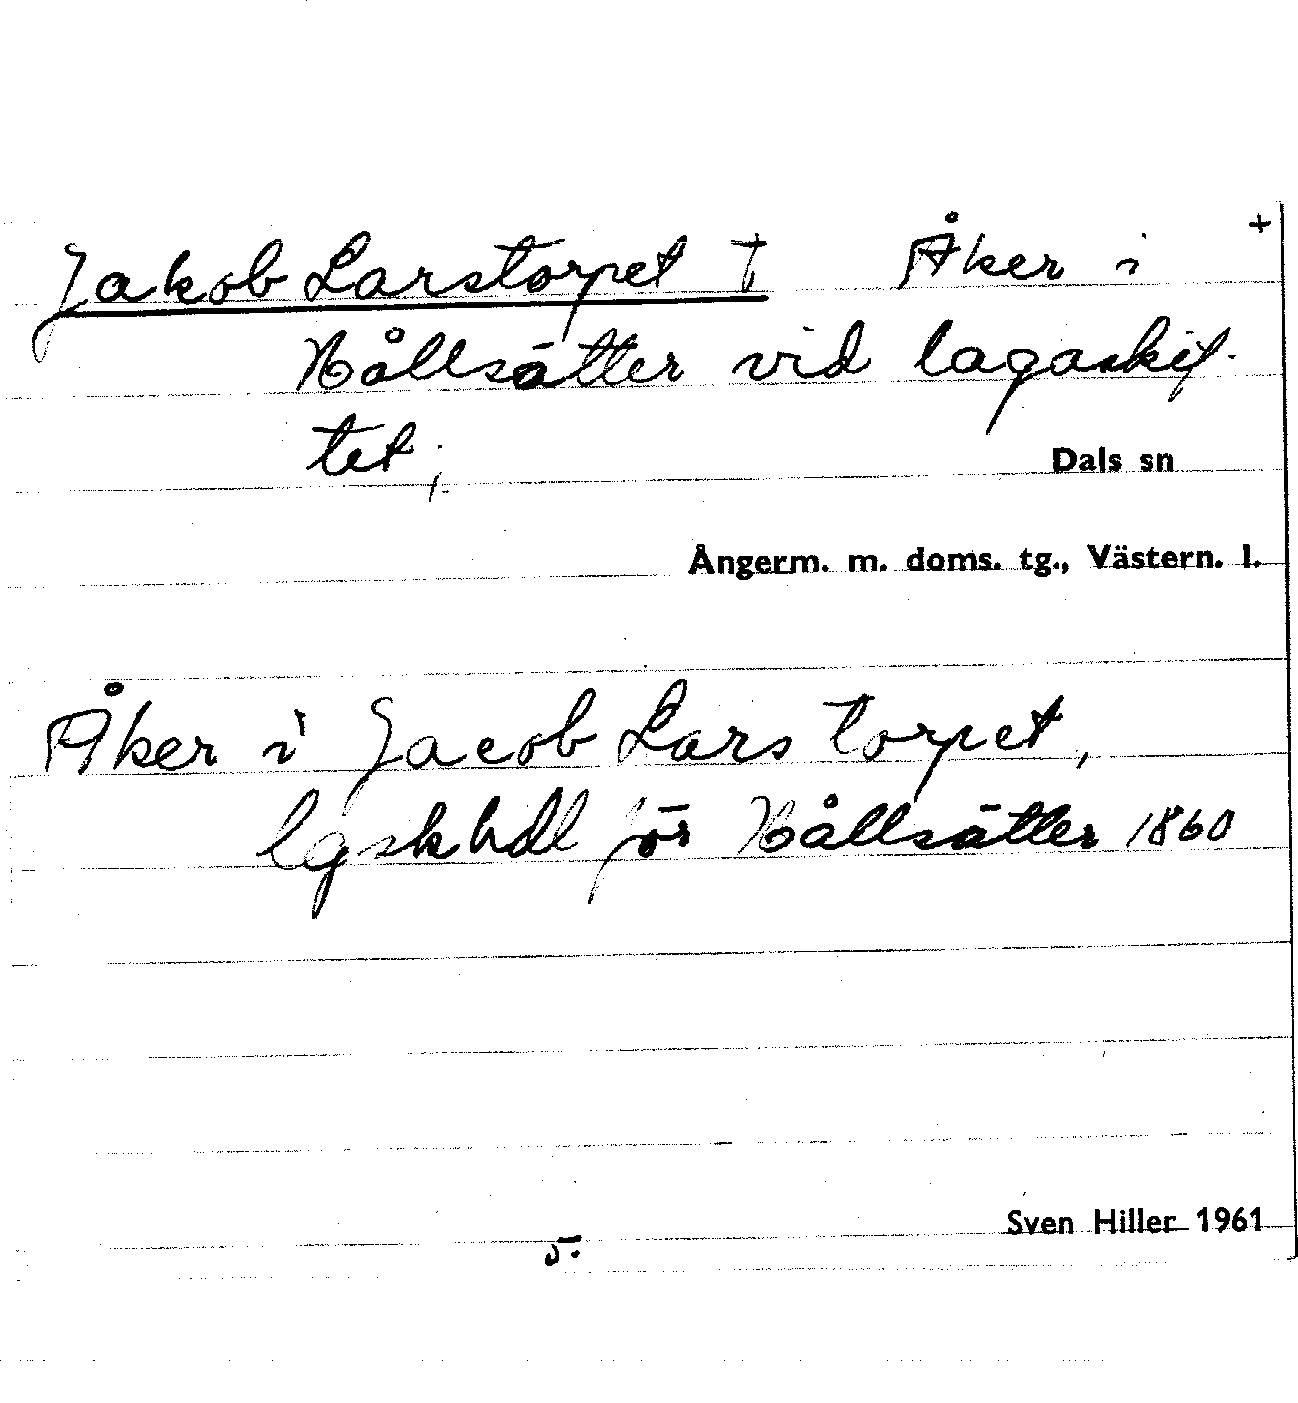 +
Jakob Larstorpet † Åker i
Hållsätter vid lagaskif-
tet,
Dals sn
Ångerm. m. doms. tg., Västern. l.
Åker i Jacob Lars torpet,
lgskhdl för Hållsätter 1860
Sven Hiller 1961
5.